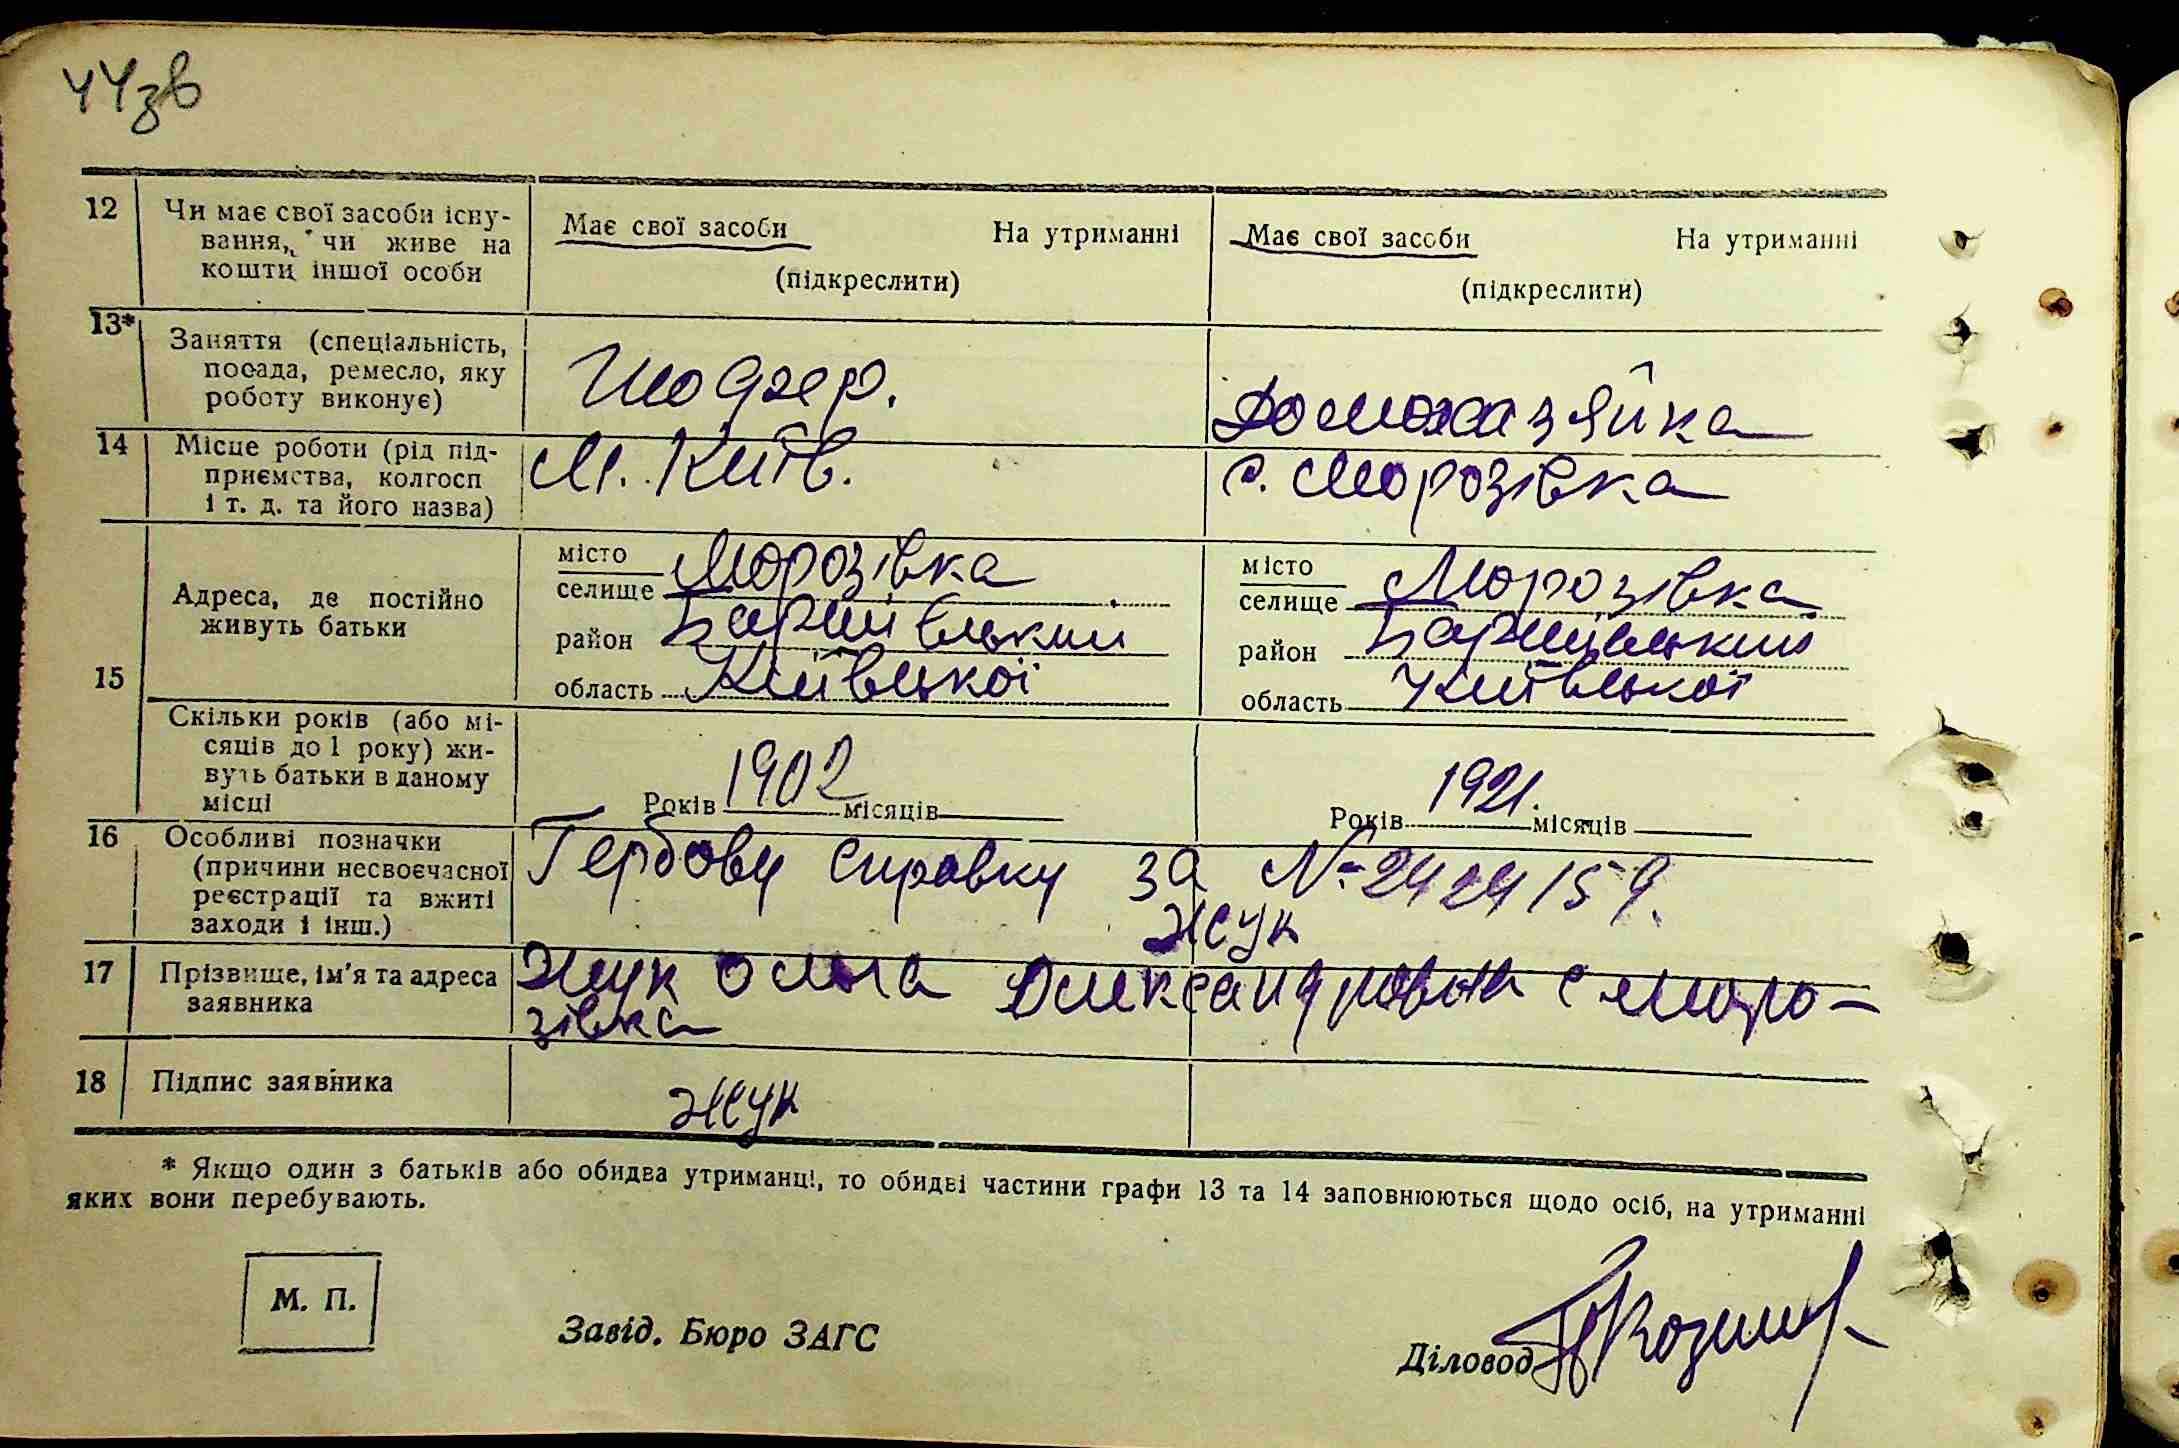 44зв
12 Чи має свої засоби існу- Має свої засоби На утриманні Має свої засоби На утриманні
вання, чи живе на
кошти іншої особи (підкреслити) (підкреслити)
13* Заняття (спеціальність,
посада, ремесло, яку Шофер. Домохазяйка
роботу виконує)
14 Місце роботи (рід під- М. Київ. с. Морозівка
приємства, колгосп
і т. д. та його назва)
15 Адреса, де постійно
живуть батьки
місто
селище Морозівка
район Баришівський
область Київської
місто
селище Морозівка
район Баришівський
область Київської
Скільки років (або мі-
сяців до 1 року) жи-
вуть батьки в даному
місці Років 1902 місяців Років 1921. місяців
16 Особливі позначки Гербову справку за № 2424159.
(причини несвоєчасної
реєстрації та вжиті Жук
заходи і інш.)
17 Прізвище, ім'я та адреса Жук Ольга Олександровна с Моро-
заявника зівка
18 Підпис заявника Жук
* Якщо один з батьків або обидва утриманці, то обидві частини графи 13 та 14 заповнюються щодо осіб, на утриманні
яких вони перебувають.
М. П.
Завід. Бюро ЗАГС
Діловод